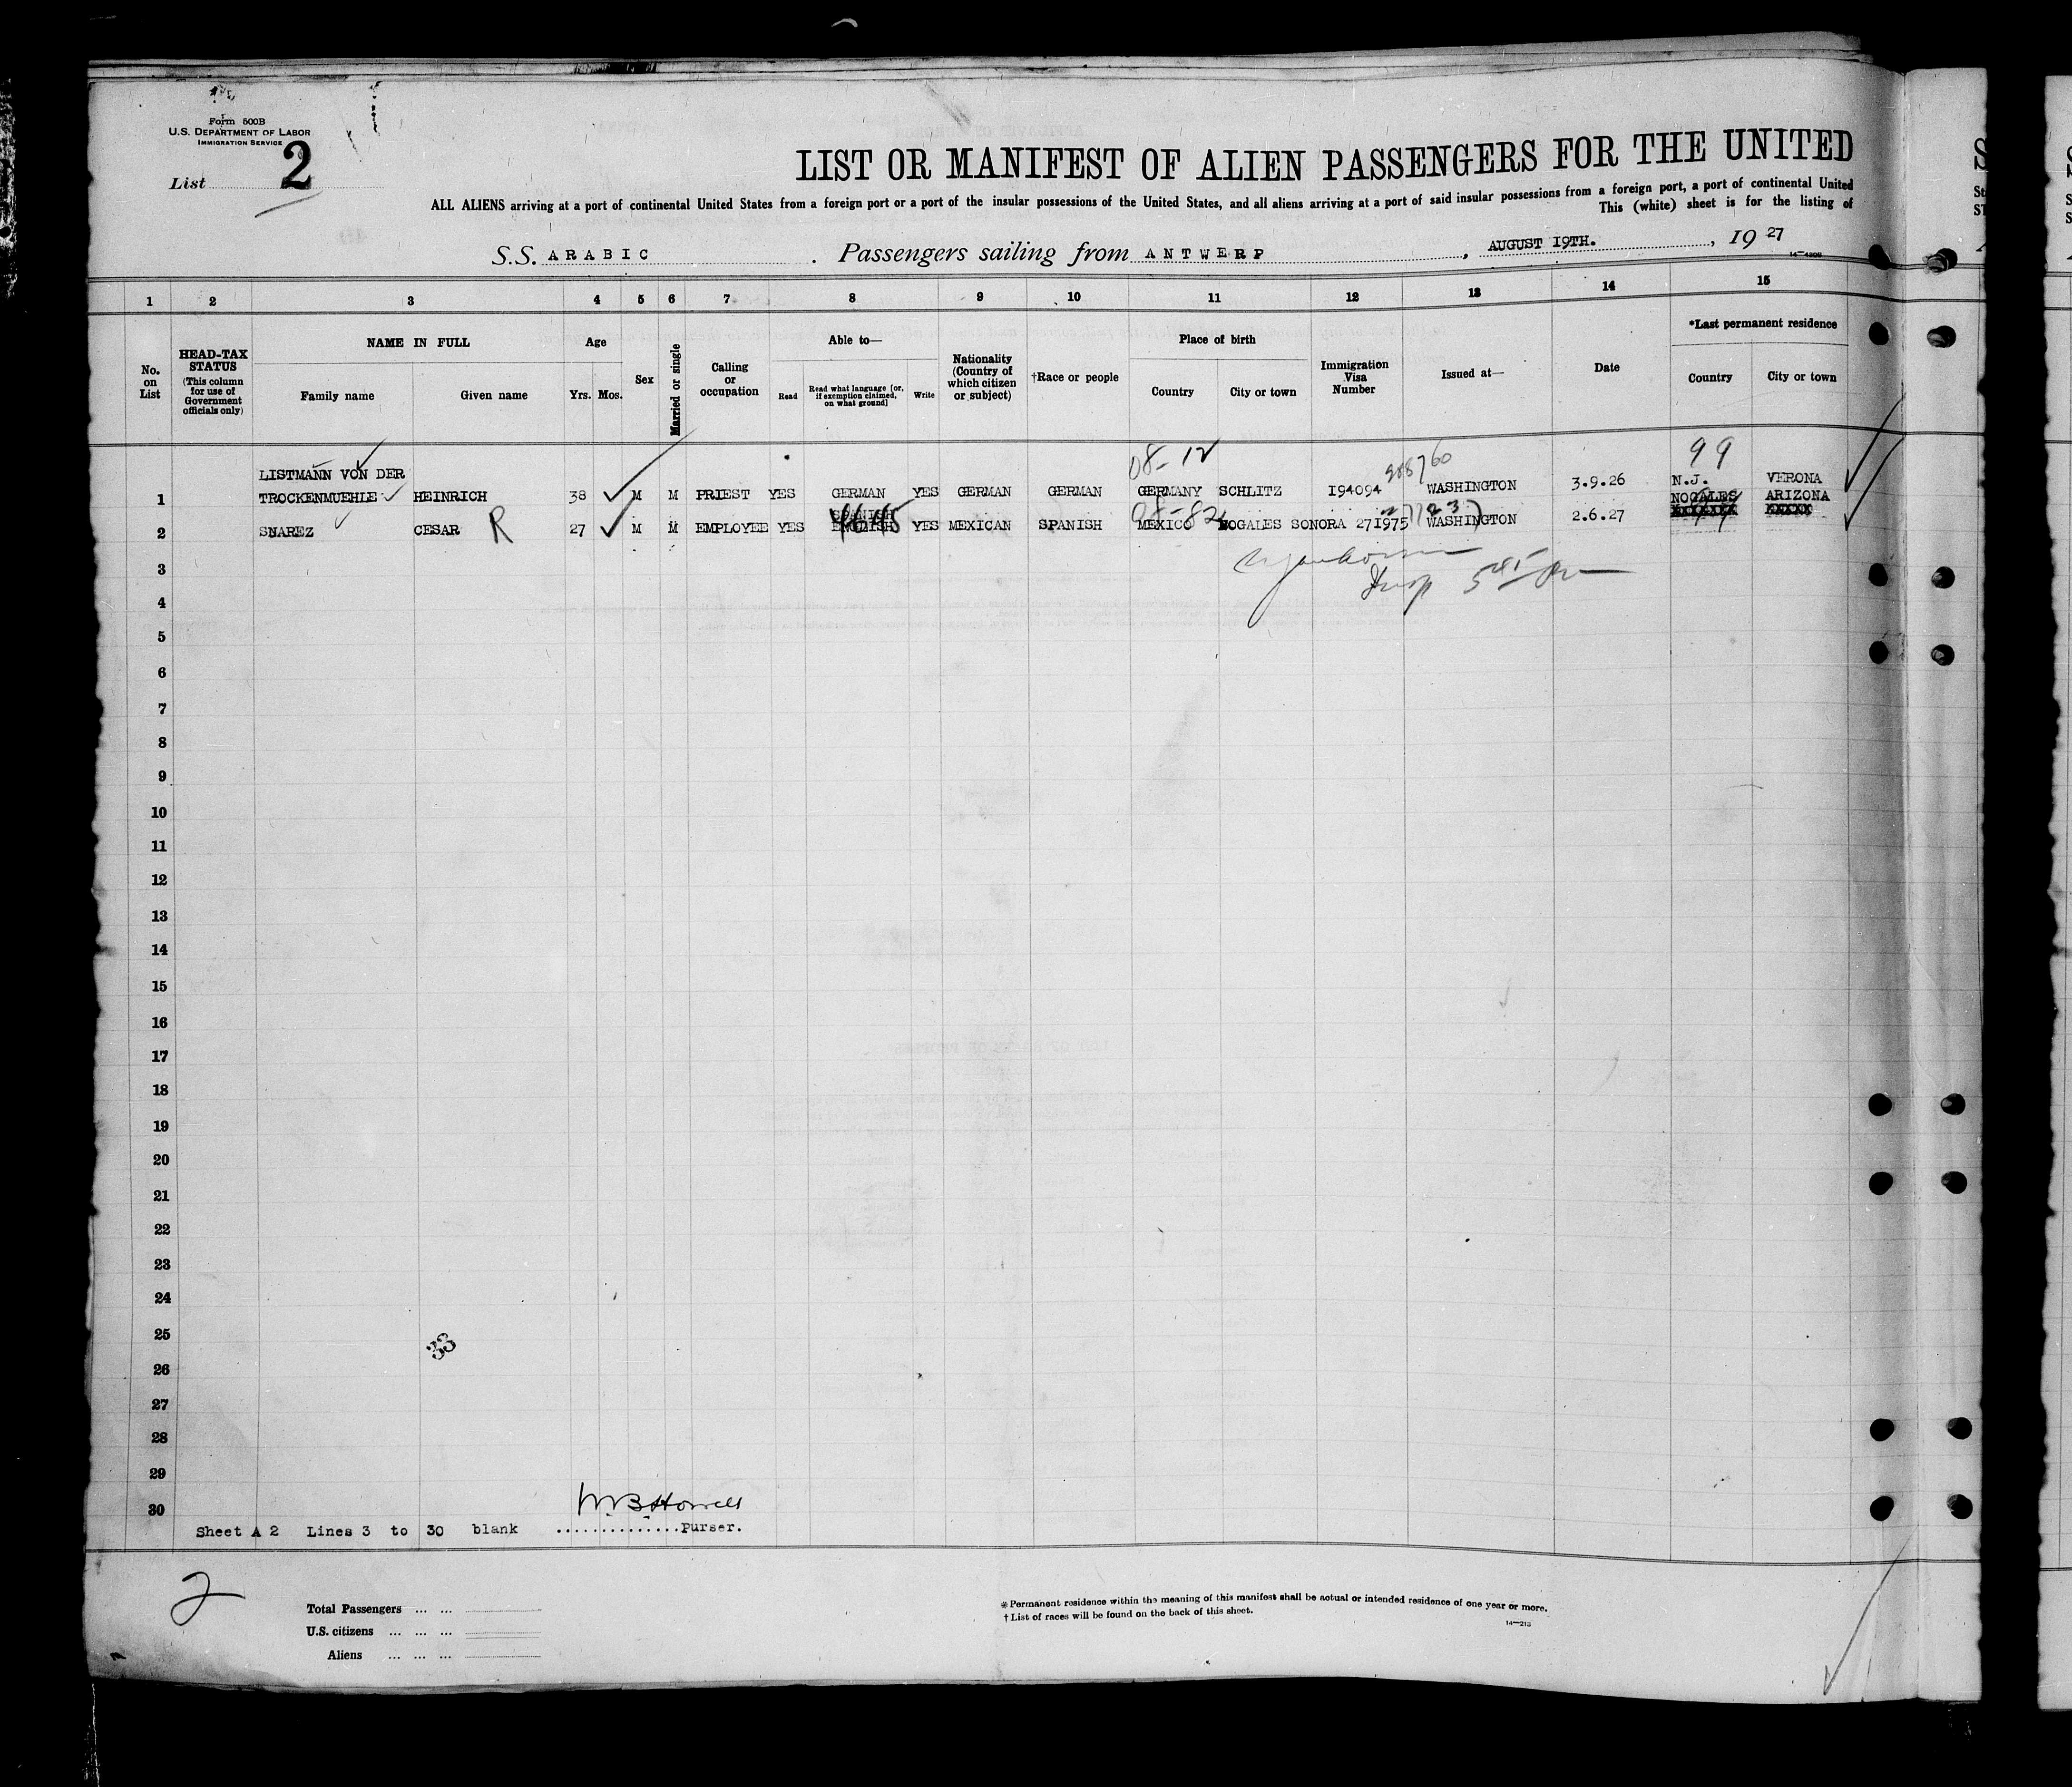 Form 500B
U.S. DEPARTMENT OF LABOR
IMMIGRATION SERVICE
List 2
LIST OR MANIFEST OF ALIEN PASSENGERS FOR THE UNITED
ALL ALIENS arriving at a port of continental United States from a foreign port or a port of the insular possessions of the United States, and all aliens arriving at a port of said insular possessions from a foreign port, a port of continental United
This (white) sheet is for the listing of
S.S. ARABIC . Passengers sailing from ANTWERP , AUGUST 19TH. , 19 27
1 2 3 4 5 6 7 8 9 10 11 12 13 14 15
No. on List
HEAD-TAX STATUS (This column for use of Government officials only)
NAME IN FULL
Family name Given name
Age
Yrs. Mos.
Sex
Married or single
Calling or occupation
Able to—
Read
Read what language [or, if exemption claimed, on what ground]
Write
Nationality (Country of which citizen or subject)
†Race or people
Place of birth
Country City or town
Immigration Visa Number
Issued at—
Date
*Last permanent residence
Country City or town
08-12 99
LISTMANN VON DER
1 TROCKENMUEHLE HEINRICH 38 M M PRIEST YES GERMAN YES GERMAN GERMAN GERMANY SCHLITZ I94094 WASHINGTON 3.9.26 N.J. VERONA
NOGALES ARIZONA
2 SNAREZ CESAR R 27 M M EMPLOYEE YES SPANISH ENGLISH YES MEXICAN SPANISH MEXICO NOGALES SONORA 271975 WASHINGTON 2.6.27
3
4
5
6
7
8
9
10
11
12
13
14
15
16
17
18
19
20
21
22
23
24
25
33
26
27
28
29
30
W B Howell
Sheet A 2 Lines 3 to 30 blank ..............Purser.
2
Total Passengers ... ...
U.S. citizens ... ... ...
Aliens ... ... ...
*Permanent residence within the meaning of this manifest shall be actual or intended residence of one year or more.
†List of races will be found on the back of this sheet.
14—213